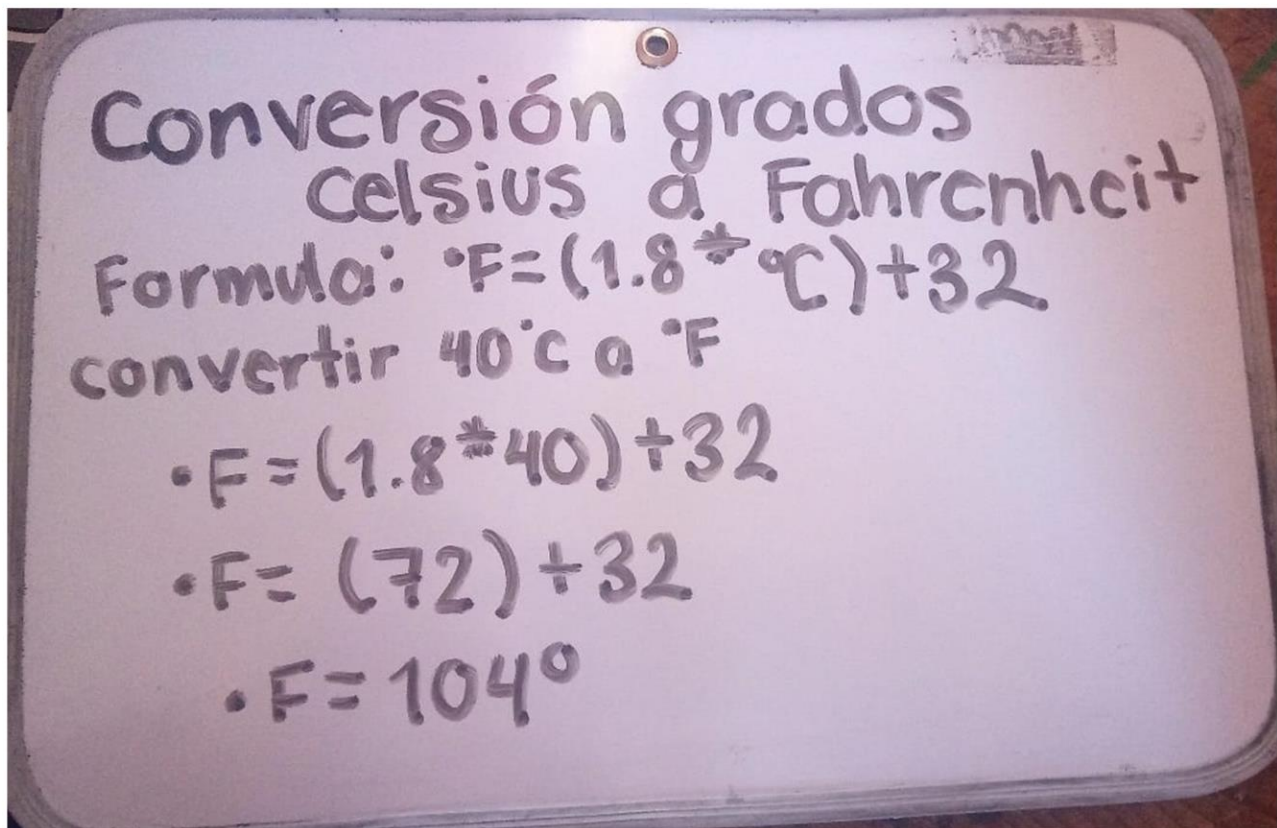 Conversión grados
Celsius a Fahrenheit
Formula: °F=(1.8*°C)+32
convertir 40°C a °F
°F=(1.8*40)+32
°F=(72)+32
°F=104°